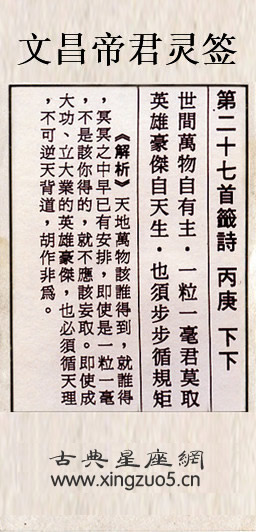 文昌帝君灵签
第二十七首籤詩 丙庚 下下
世間萬物自有主．一粒一毫君莫取
英雄豪傑自天生．也須步步循規矩
《解析》天地萬物該誰得到，就誰得
，冥冥之中早已有安排，即使是一粒一毫
，不是該你得的，就不應該妄取。即使成
大功、立大業的英雄豪傑，也必須循天理
，不可逆天背道，胡作非為。
古典星座網
www.xingzuo5.cn